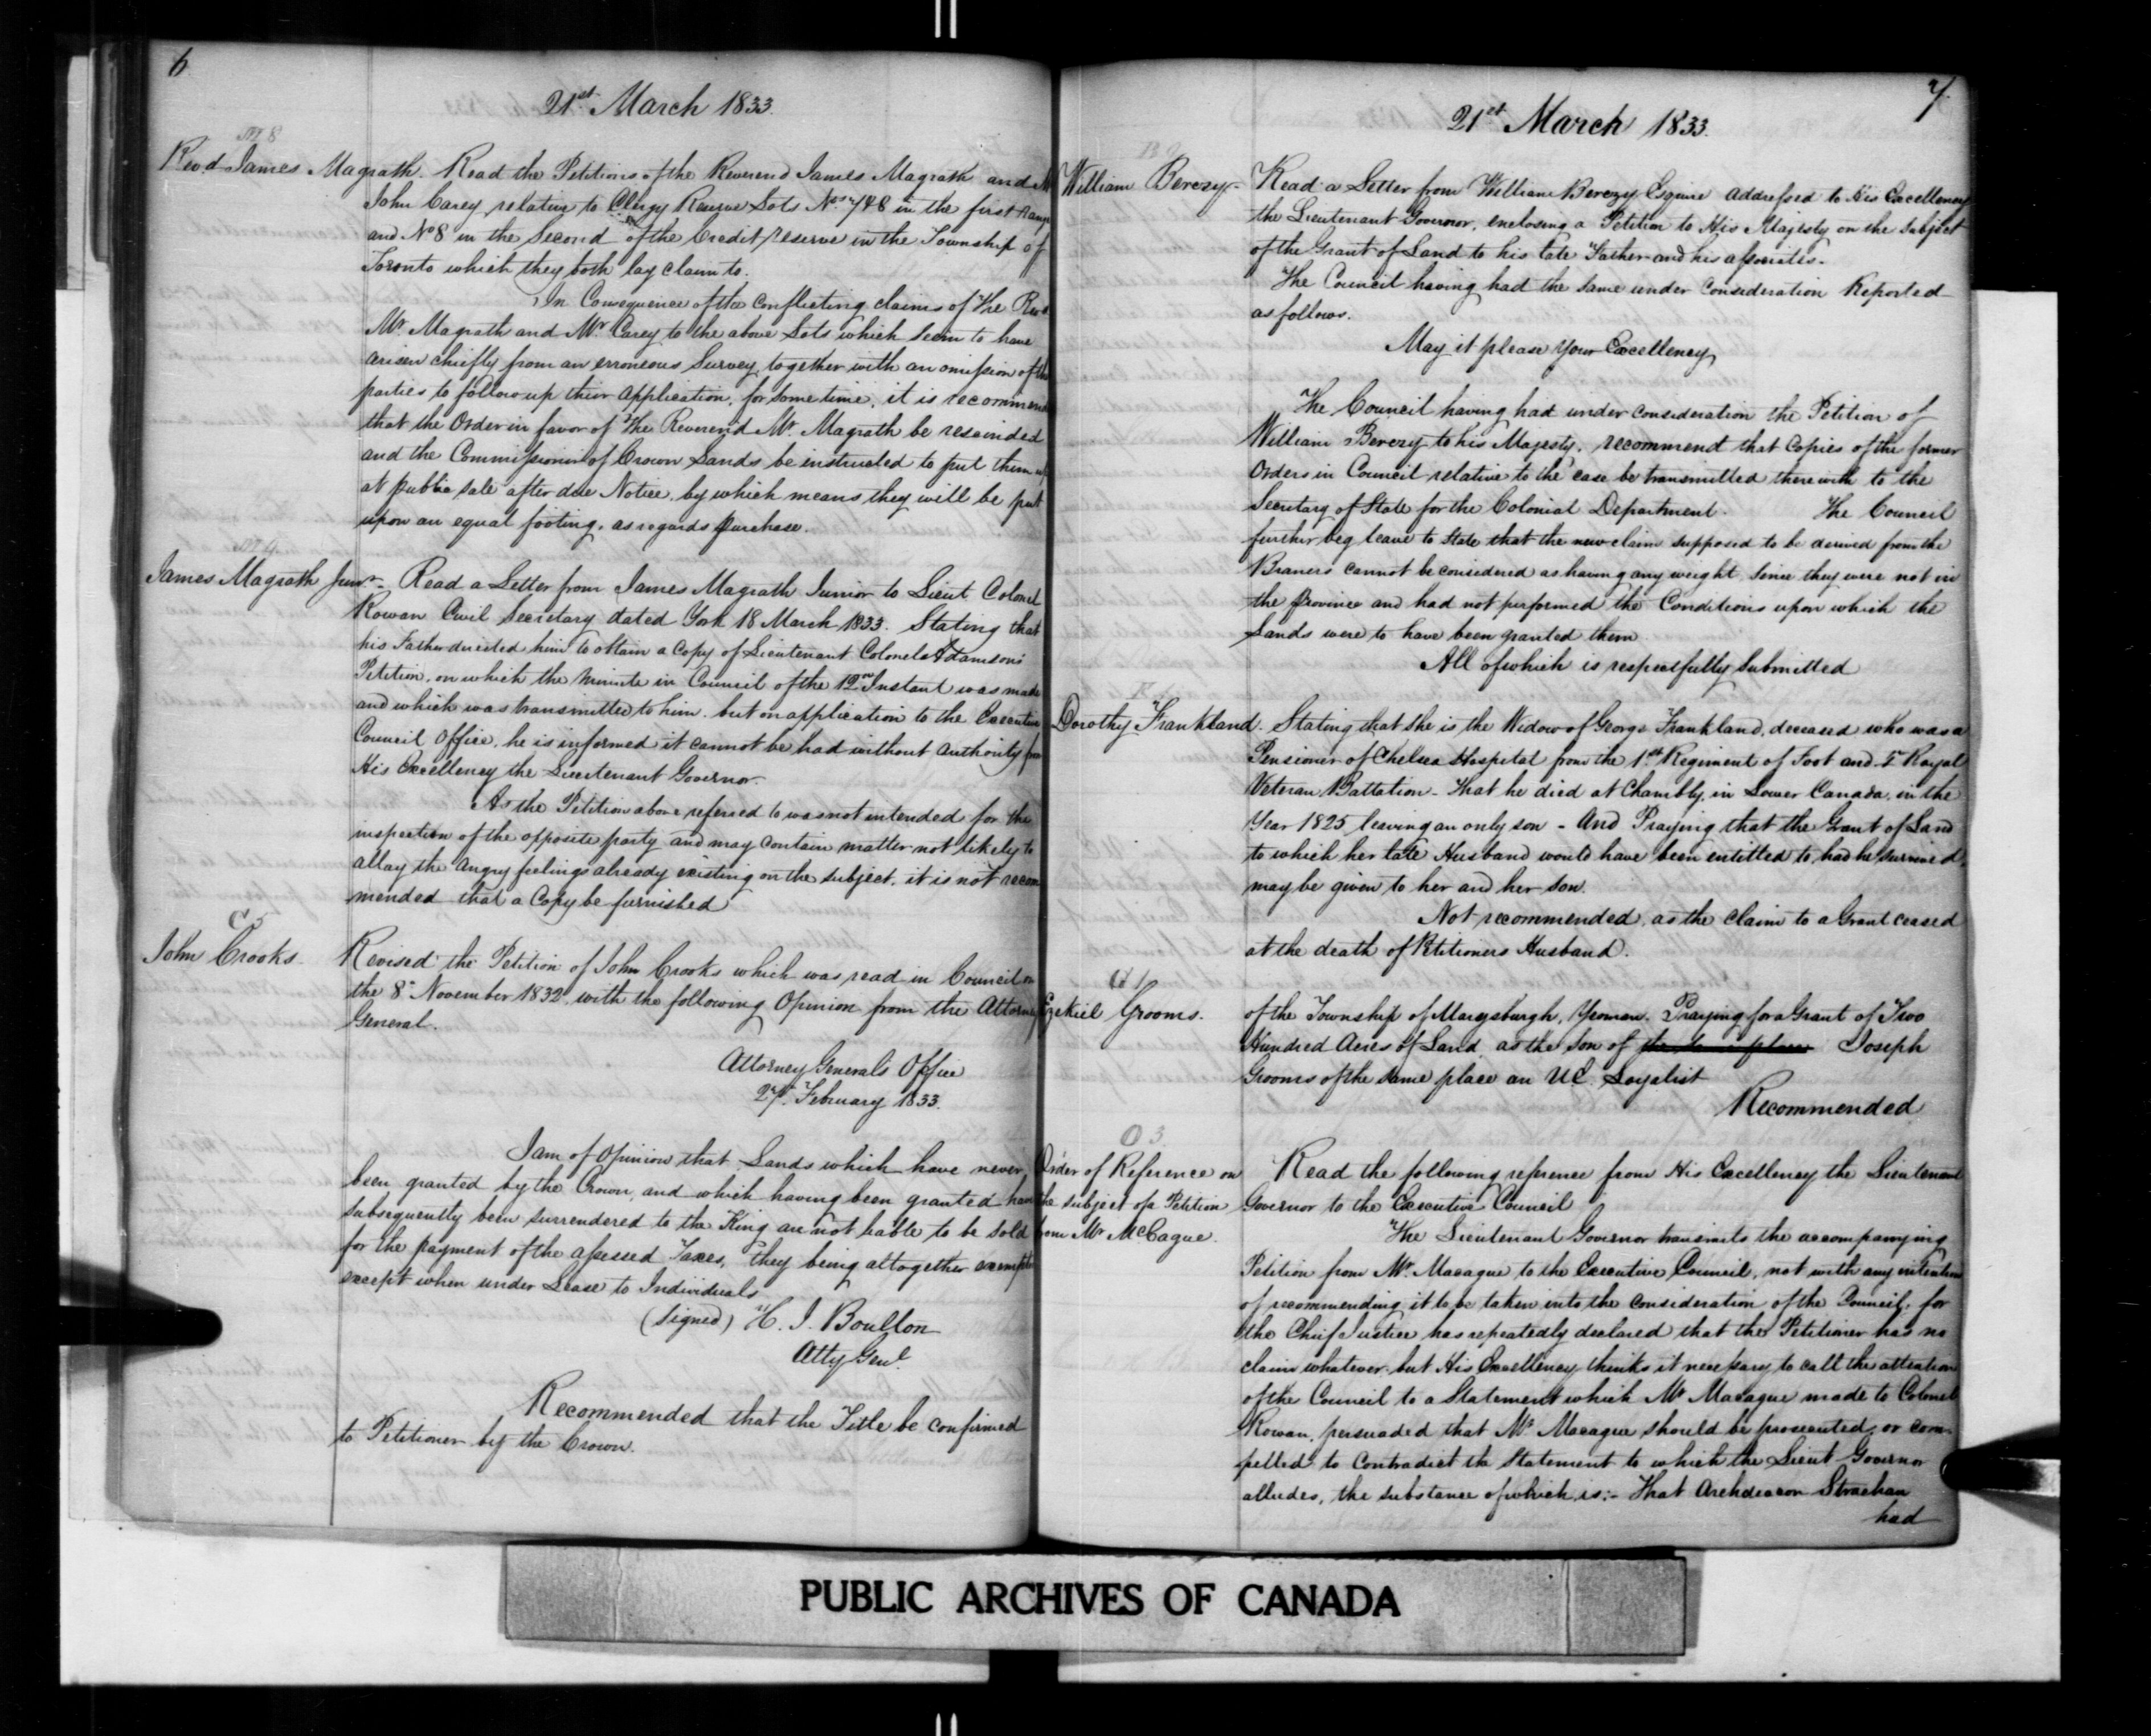 6
21st March 1833.
M 8
Revd James Magrath. Read the Petitions of the Reverend James Magrath and
John Carey, relative to Clergy Reserve Lots Nos 7 & 8 in the first Range
and No 8 in the Second of the Credit reserve in the Township of
Toronto which they both lay claim to.
In Consequence of the conflicting claims of The Revd
Mr Magrath and Mr Carey to the above Lots which seem to have
arisen chiefly from an erroneous Survey, together with an omission of the
parties to follow up their application, for some time, it is recommend
that the Order in favor of The Reverend Mr Magrath be rescinded
and the Commissioner of Crown Lands be instructed to put them up
at public sale after due Notice, by which means they will be put
upon an equal footing, as regards purchase.
James Magrath Junr - Read a Letter from James Magrath Junior to Lieut Colonel
Rowan Civil Secretary dated York 18 March 1833. Stating that
his Father directed him to obtain a Copy of Lieutenant Colonel Adamson's
Petition, on which the Minute in Council of the 12th Instant was made
and which was transmitted to him. but on application to the Executive
Council Office, he is informed it cannot be had without Authority from
His Excellency the Lieutenant Governor.
As the Petition above referred to was not intended for the
inspection of the opposite party and may contain matter not likely to
allay the angry feelings already existing on the subject, it is not recom
mended that a Copy be furnished
C 5
John Crooks. Revised the Petition of John Crooks which was read in Council on
the 8th November 1832, with the following Opinion from the Attorney
General.
Attorney Generals Office
27th February 1833.
I am of Opinion that Lands which have never
been granted by the Crown, and which having been granted have
subsequently been surrendered to the King are not liable to be sold
for the payment of the assessed Taxes, they being altogether exempted
except when under Lease to Individuals
(signed) H. J. Boulton
Atty Genl.
Recommended that the Title be confirmed
to Petitioner by the Crown.
7.
21st March 1833.
B 2
William Berczy - Read a Letter from William Berczy Esquire addressed to His Excellency
the Lieutenant Governor, enclosing a Petition to His Majesty on the subject
of the Grant of Land to his late Father and his associates.
The Council having had the same under consideration Reported
as follows.
May it please Your Excellency,
The Council having had under consideration the Petition of
William Berczy to his Majesty, recommend that Copies of the former
Orders in Council relative to the case be transmitted therewith to the
Secretary of State for the Colonial Department. The Council
further beg leave to state that the new claim supposed to be derived from the
cannot be considered as having any weight, since they were not in
the province and had not performed the Conditions upon which the
Lands were to have been granted them
All of which is respectfully submitted
F 1
Dorothy Frankland. Stating that she is the Widow of George Frankland, deceased who was a
Pensioner of Chelsea Hospital from the 1st Regiment of Foot and Royal
Veteran Battalion - That he died at Chambly, in Lower Canada, in the
Year 1825 leaving an only son - And Praying that the Grant of Land
to which her late Husband would have been entitled to, had he survived,
may be given to her and her son.
Not recommended, as the claim to a Grant ceased
at the death of Petitioners Husband.
G 1
Ezekiel Grooms. of the Township of Marysburgh, Yeoman. Praying for a Grant of Two
Hundred Acres of Land, as the son of the same place Joseph
Grooms of the same place an U.E. Loyalist
Recommended
O 3
Order of Reference on
the subject of a Petition
from Mr McCague.
Read the following reference from His Excellency the Lieutenant
Governor to the Executive Council
The Lieutenant Governor transmits the accompanying
Petition from Mr Macague to the Executive Council, not with any intention
of recommending it to be taken into the consideration of the Council, for
the Chief Justice has repeatedly declared that the Petitioner has no
claim whatever, but His Excellency thinks it necessary to call the attention
of the Council to a Statement which Mr Macague made to Colonel
Rowan, persuaded that Mr Macague should be prosecuted, or com-
pelled to contradict the Statement to which the Lieut Governor
alludes, the substance of which is:- That Archdeacon Strachan
had
PUBLIC ARCHIVES OF CANADA